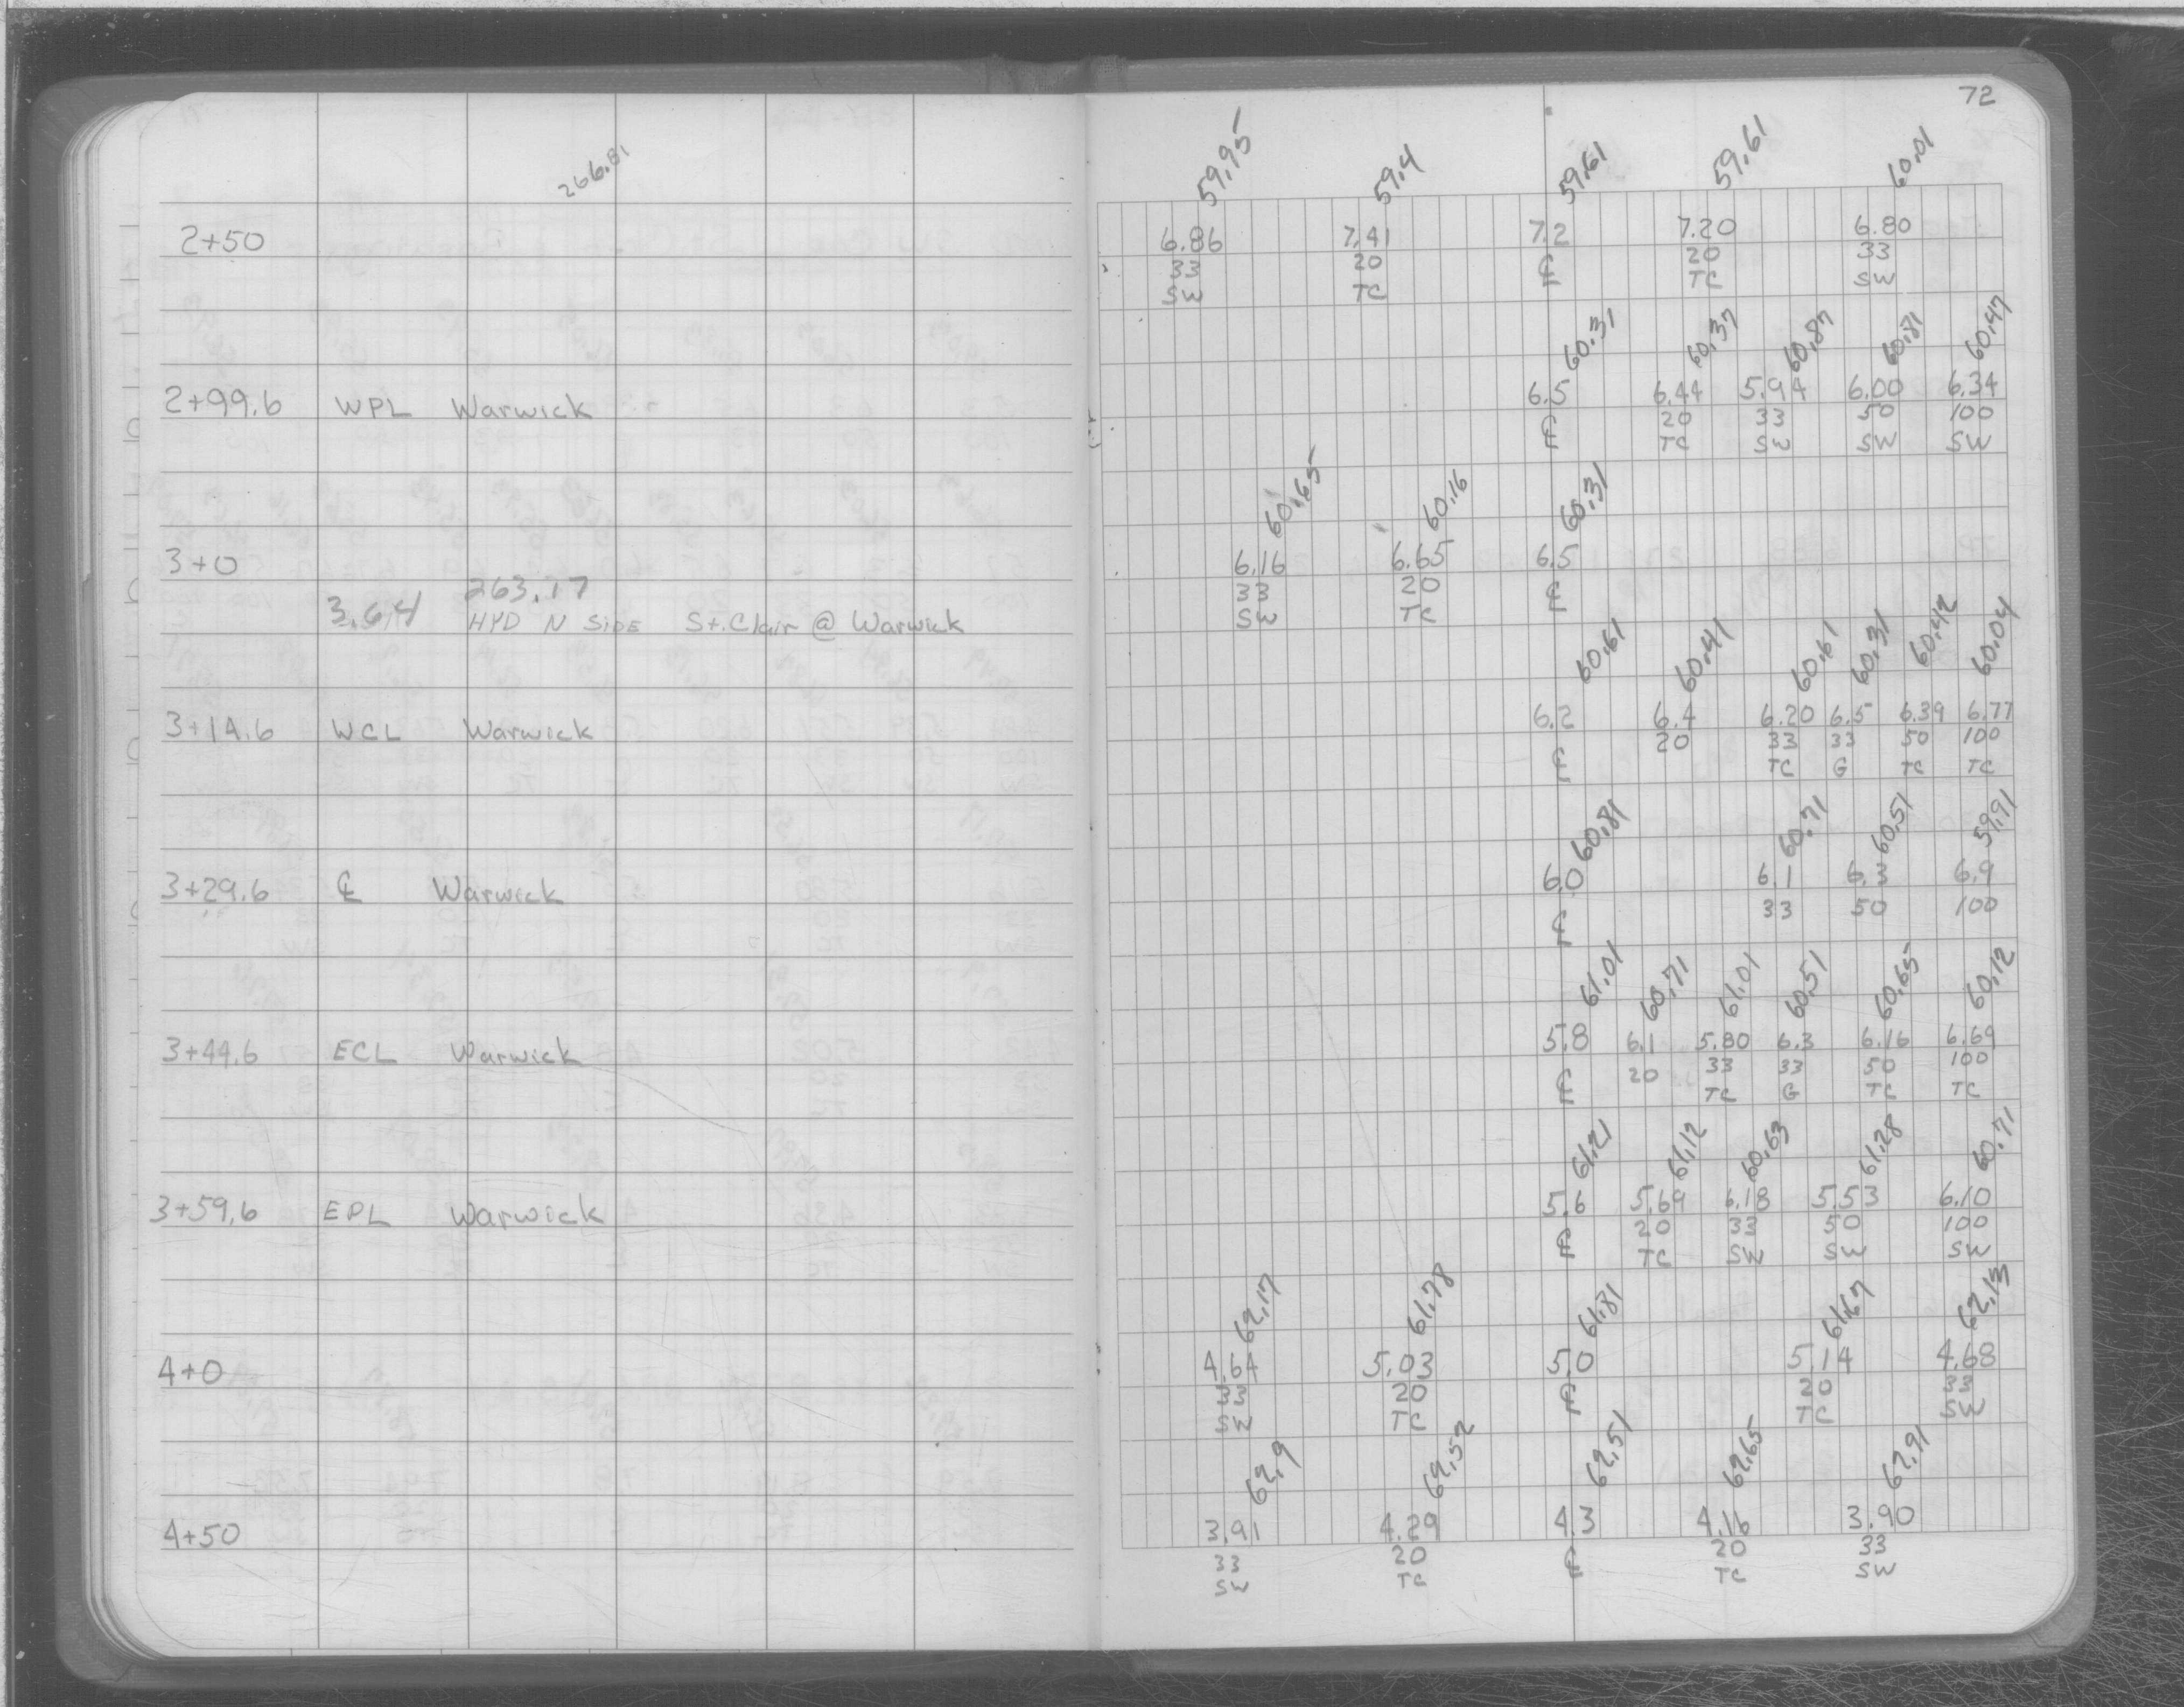 72
266.81
59.95 59.4 59.61 59.61 60.01
2+50 6.86 7.41 7.2 7.20 6.80
33 20 ℄ 20 33
SW TC TC SW
60.31 60.37 60.87 60.81 60.47
2+99.6 WPL Warwick 6.5 6.44 5.94 6.00 6.34
℄ 20 33 50 100
TC SW SW SW
60.65 60.16 60.31
3+0 6.16 6.65 6.5
263.17 33 20 ℄
3.64 HYD N SIDE St. Clair @ Warwick SW TC
60.61 60.41 60.61 60.31 60.42 60.04
3+14.6 WCL Warwick 6.2 6.4 6.20 6.5 6.39 6.77
℄ 20 33 33 50 100
TC G TC TC
60.81 60.71 60.51 59.91
3+29.6 ℄ Warwick 6.0 6.1 6.3 6.9
℄ 33 50 100
61.01 60.71 61.01 60.51 60.65 60.12
3+44.6 ECL Warwick 5.8 6.1 5.80 6.3 6.16 6.69
℄ 20 33 33 50 100
TC G TC TC
61.21 61.12 60.63 61.28 60.71
3+59.6 EPL Warwick 5.6 5.69 6.18 5.53 6.10
℄ 20 33 50 100
TC SW SW SW
62.17 61.78 61.81 61.67 62.13
4+0 4.64 5.03 5.0 5.14 4.68
33 20 ℄ 20 33
SW TC TC SW
62.9 62.52 62.51 62.65 62.91
4+50 3.91 4.29 4.3 4.16 3.90
33 20 ℄ 20 33
SW TC TC SW